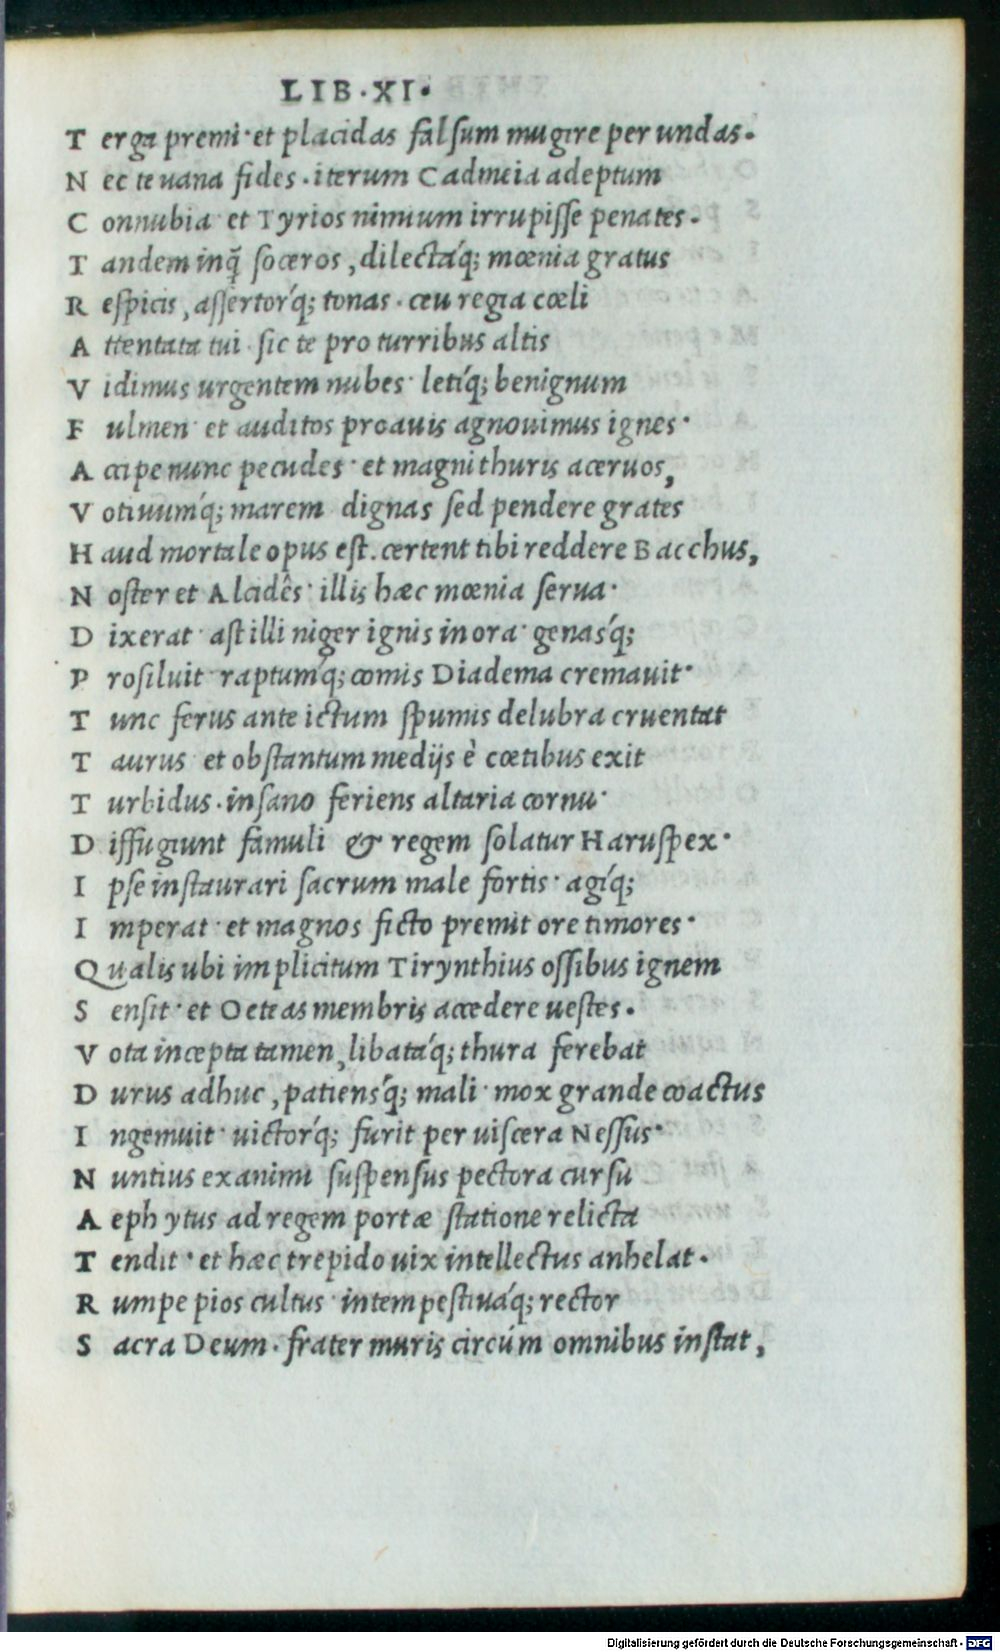 LIB·XI·
T erga premi· et placidas falsum mugire per undas.
N ec te uana fides· iterum Cadmeia adeptum
C onnubia· et Tyrios nimium irrupisse penates.
T andem inq̃ soceros, dilectáq; mœnia gratus
R espicis, assertorq́; tonas· ceu regia cœli
A ttentata tui· sic te pro turribus altis
V idimus urgentem nubes· letiq́; benignum
F ulmen· et auditos proauis agnouimus ignes·
A ccipe nunc pecudes· et magni thuris aceruos,
V otiuumq́; marem dignas sed pendere grates
H aud mortale opus est. certent tibi reddere Bacchus,
N oster et Alcidês· illis hæc mœnia serua·
D ixerat· ast illi niger ignis in ora· genasq́;
P rosiluit· raptumq́; comis Diadema cremauit·
T unc ferus ante ictum spumis delubra cruentat
T aurus· et obstantum medijs è cœtibus exit
T urbidus· insano feriens altaria cornu·
D iffugiunt famuli & regem solatur Haruspex·
I pse instaurari sacrum male fortis· agiq́;
I mperat· et magnos ficto premit ore timores·
Qualis ubi implicitum Tirynthius ossibus ignem
S ensit· et Oeteas membris accedere uestes.
V ota incepta tamen, libatáq; thura ferebat
D urus adhuc, patiensq́; mali· mox grande coactus
I ngemuit· uictorq́; furit per uiscera Nessus·
N untius exanimi suspensus pectora cursu
A ephytus ad regem portæ statione relicta
T endit· et hæc trepido uix intellectus anhelat.
R umpe pios cultus· intempestiuáq; rector
S acra Deum. frater muris circúm omnibus instat,
Digitalisierung gefördert durch die Deutsche Forschungsgemeinschaft - DFG